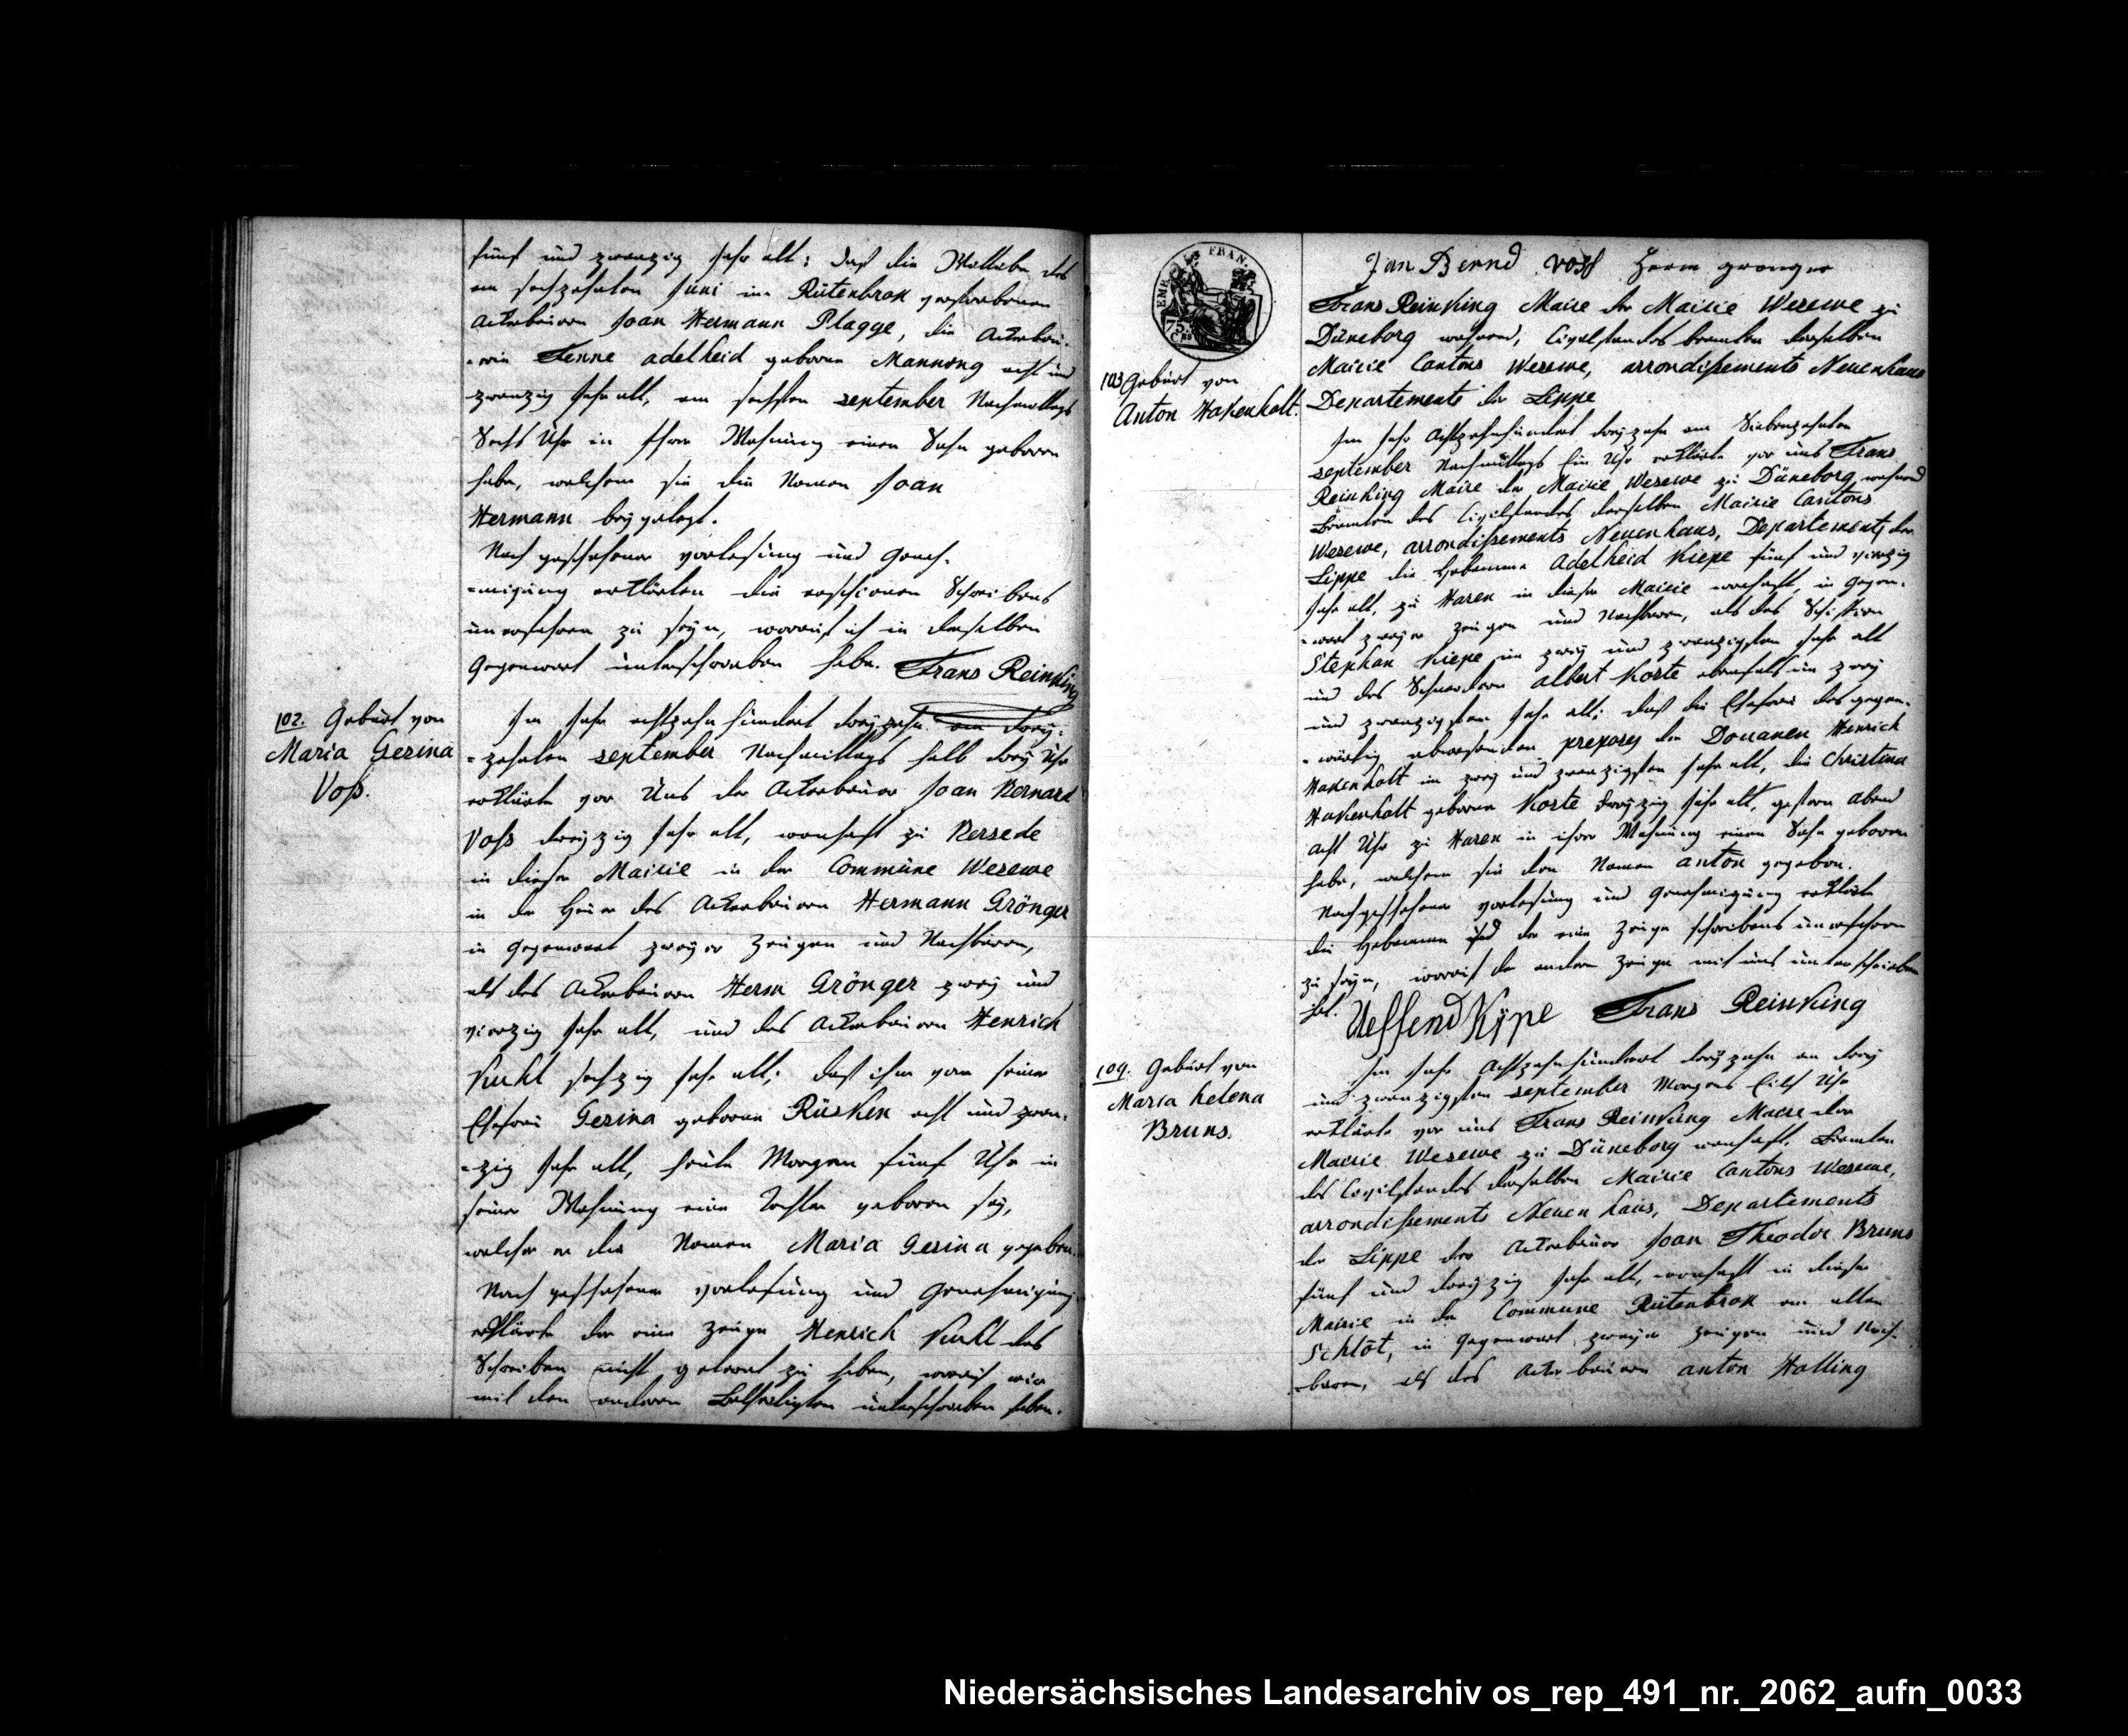 fünf und zwanzig Jahr alt; daß die Wittwe des
am sechzehnten Juni in Rütenbrok verstorbenen
Ackerbauern Joan Hermann Plagge, die Ackerbäu-
-rin Fenne adelheid geboren Mannong acht und
zwanzig Jahr alt, am sechsten september Nachmittags
Sechs Uhr in Ihrer Wohnung einen Sohn geboren
habe, welchem sie die Namen Joan
Hermann beygelegt.
Nach geschehener Vorlesung und Geneh-
-migung erklärten die erschienen Schreibens
unerfahren zu seyn, worauf ich in derselben
Gegenwart unterschrieben habe. Frans Reinking
102. Geburt von
Maria Gesina
Voß.
Im Jahr achtzehn hundert dreyzehn am drey-
-zehnten september Nachmittags halb drey Uhr
erklärte vor Uns der Ackerbauer Joan Bernard
Voß dreyzig Jahr alt, wonhaft zu Versede
in dieser Mairie in der Commüne Wesewe
in der Heuer des Ackerbauern Hermann Grönger
in Gegenwart zweyer Zeugen und Nachbaren,
als des Ackerbauern Herm Grönger zwey und
vierzig Jahr alt, und des Ackerbauern Henrich
Kuhl sechzig Jahr alt; daß ihm von seiner
Ehefrau Gesina geboren Rüsken acht und zwan-
-zig Jahr alt, heute Morgen fünf Uhr in
seiner Wohnung eine Tochter geboren sey,
welcher er die Namen Maria Gesina gegeben.
Nach geschehener Vorlesung und Genehmigung
erklärte der eine Zeuge Henrich Kuhl das
Schreiben nicht gelernt zu haben, worauf wir
mit den anderen Betheiligten unterschrieben haben.
EMP FRAN.
75
Jan Bernd Voss Herm gronger
Frans Reinking Maire der Mairie Wesewe zu
Düneborg wohnend, Civilstandes beamten derselben
Mairie Cantons Wesewe, arrondißements Neuenhaus
Departements der Lippe
103 Geburt von
Anton Hakenholt.
Im Jahr Achtzehnhundert dreyzehn am Siebenzehnten
september Nachmittags Ein Uhr erklärte vor uns Frans
Reinking Maire der Mairie Wesewe zu Düneborg, wohnend
Beamten des Civilstandes derselben Mairie Cantons
Wesewe, arrondißements Neuenhaus, Departements der
Lippe die Hebamme Adelheid Kiepe fünf und vierzig
Jahr alt, zu Haren in dieser Mairie wonhaft, in Gegen-
-wart zweyer Zeugen und Nachbaren, als des Schiffern
Stephan Kiepe im zwey und zwanzigsten Jahr alt
und des Schneidern albert Korte ebenfals im zwey
und zwanzigsten Jahr alt; daß die Ehefrau des gegen-
-wärtig abwesenden preposes der Douanen Henrich
Hakenholt im zwey und zwanzigsten Jahr alt, die Christina
Hakenholt geboren Korte dreyzig Jahr alt, gestern Abend
acht Uhr zu Haren in ihrer Wohnung einen Sohn geboren
habe, welchem sie den Namen anton gegeben.
Nach geschehener Vorlesung und Genehmigung erklärte
die Hebamme und der eine Zeuge schreibens unerfahren
zu seyn, worauf der andere Zeuge mit uns unterschrieben
hat. Kÿpe Frans Reinking
109. Geburt von
Maria helena
Bruns.
Im Jahr Achtzehnhundert dreyzehn am drey
und zwanzigsten september Morgens Eilf Uhr
erklärte vor uns Frans Reinking Maire der
Mairie Wesewe zu Düneborg wonhaft, Beamten
des Civilstandes derselben Mairie Cantons Wesewe,
arrondißements Neuen haus, Departements
der Lippe der Ackerbauer Joan Theodor Bruns
fünf und dreyzig Jahr alt, wonhaft in dieser
Mairie in der Commune Rütenbrok am alten
Schlōt, in Gegenwart zweyer Zeugen und Nach-
-baren, als des Ackerbauern anton Halling
Niedersächsisches Landesarchiv os_rep_491_nr._2062_aufn_0033